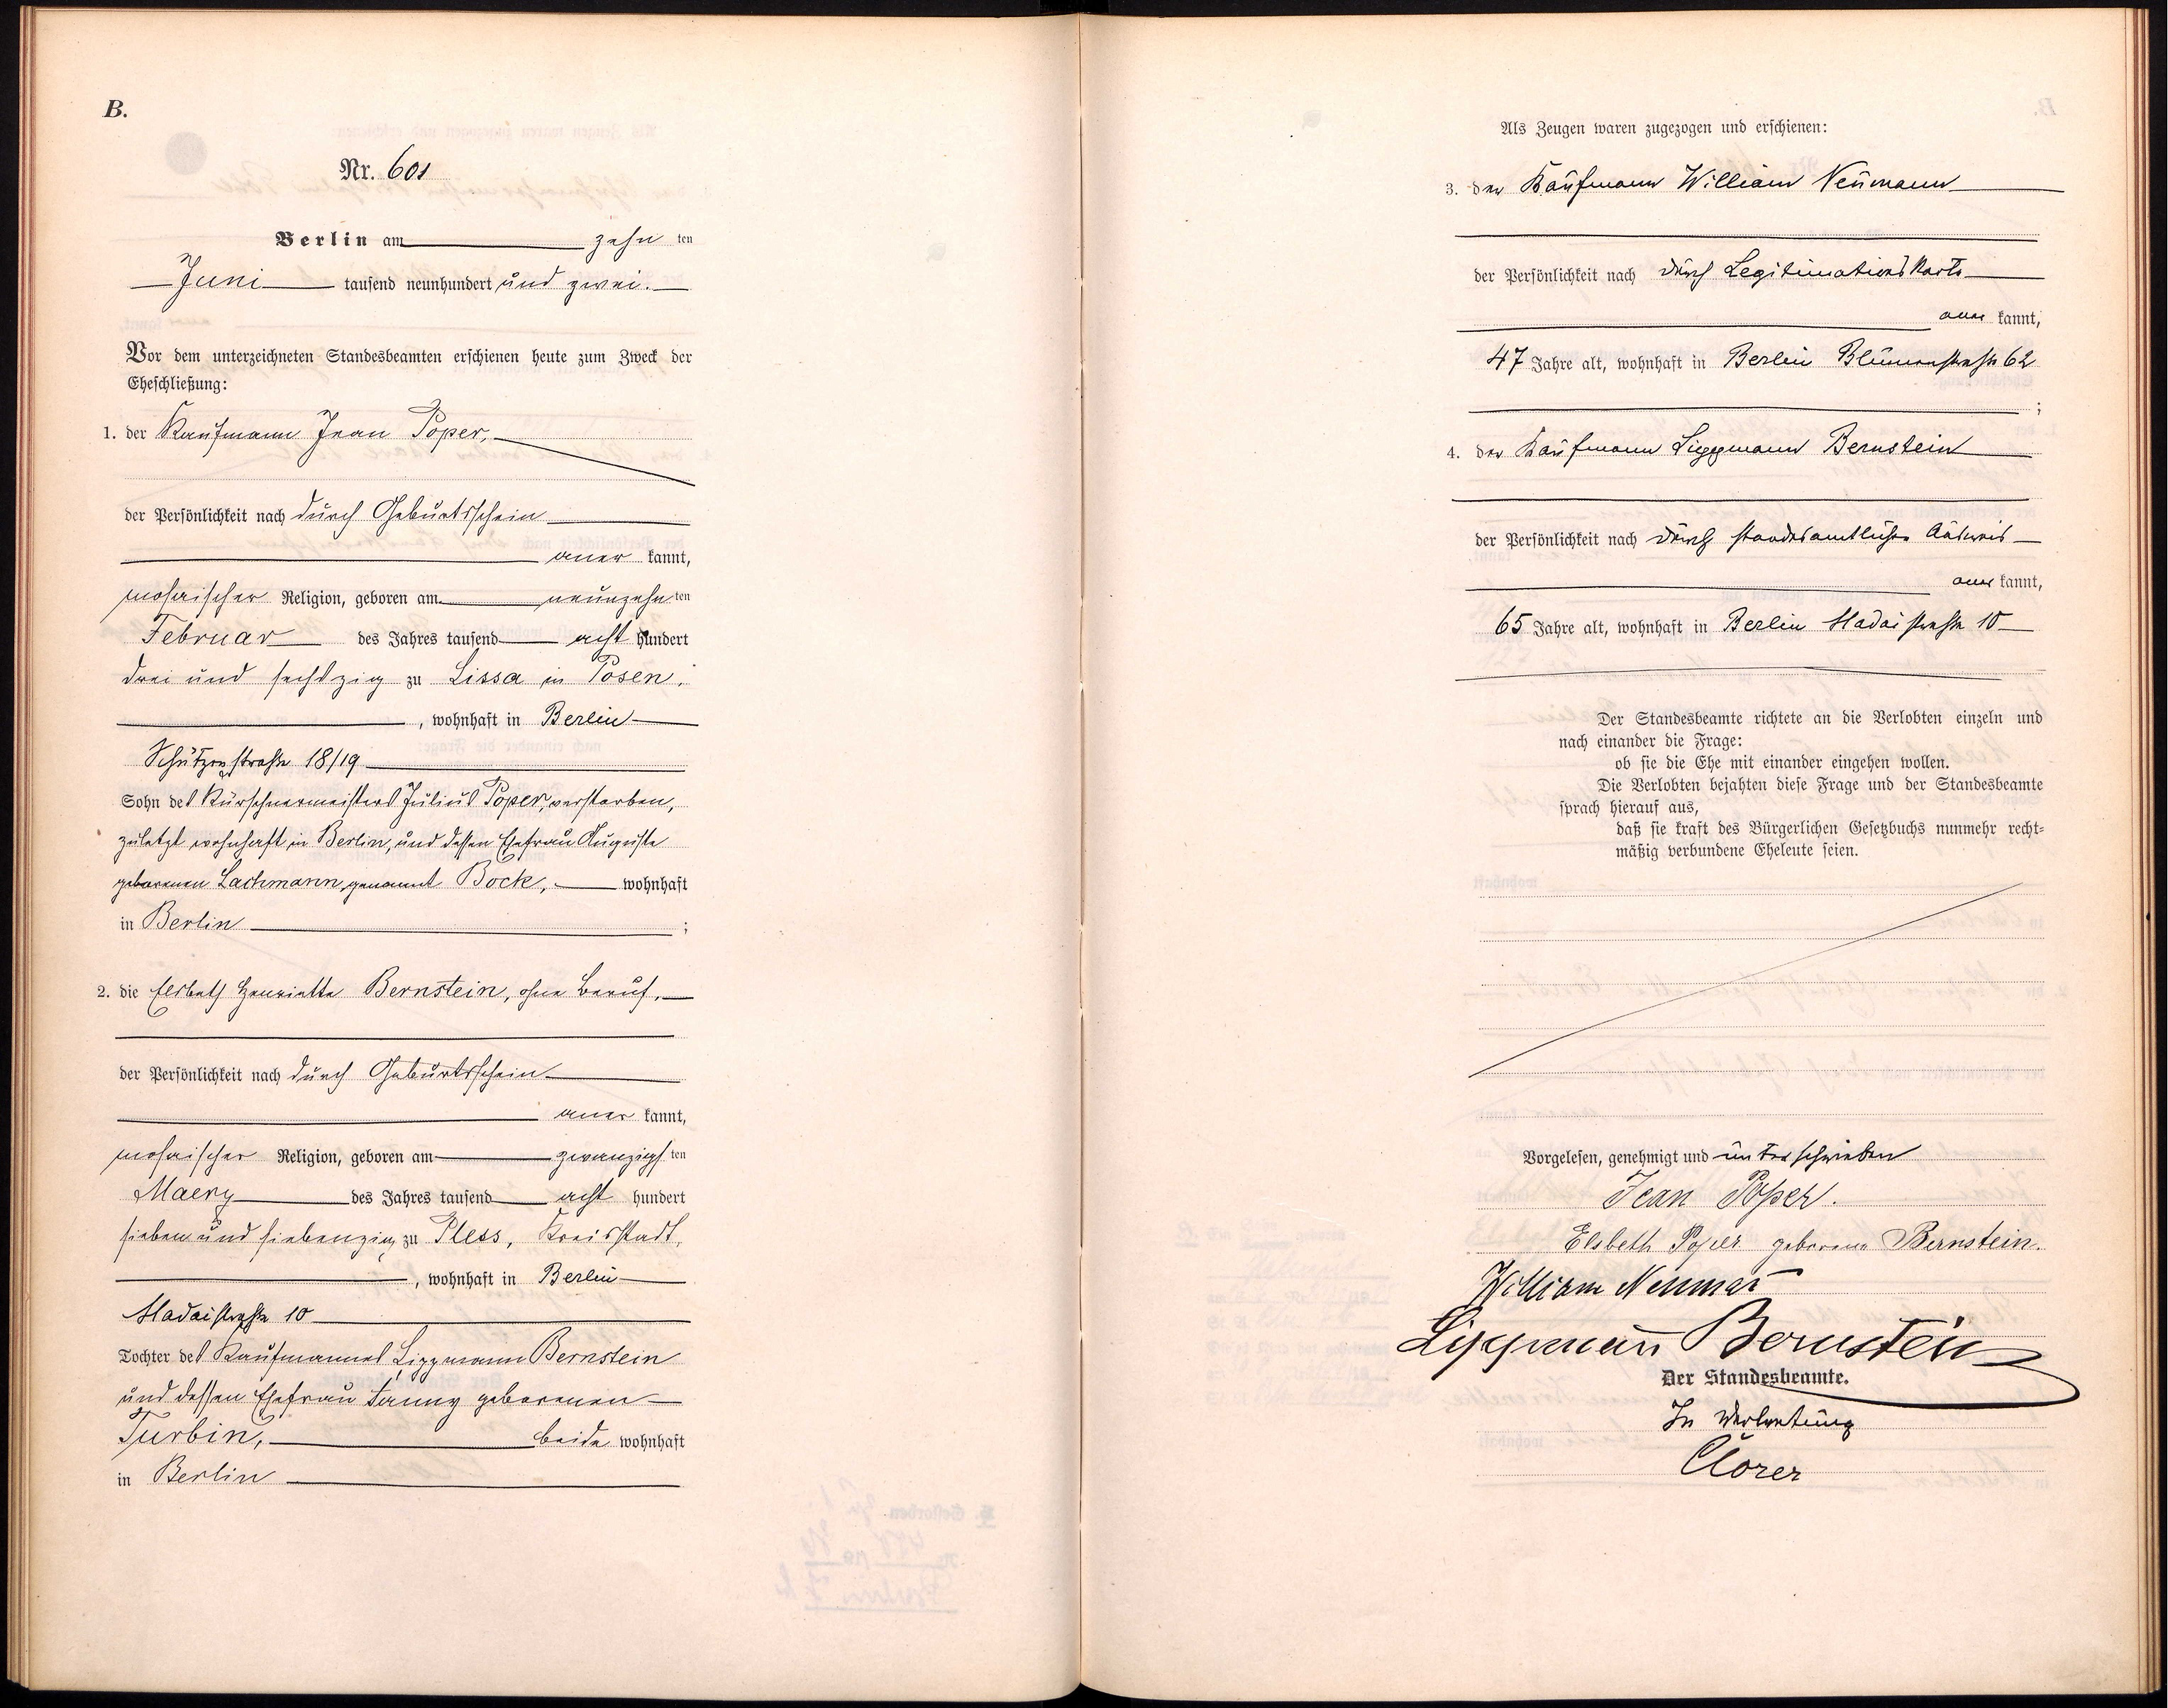 B.
Nr. 601
Berlin am zehn ten
Juni tausend neunhundert und zwei.
Vor dem unterzeichneten Standesbeamten erschienen heute zum Zweck der
Eheschließung:
1. der Kaufmann Jean Poper,
der Persönlichkeit nach durch Geburtsschein
aner kannt,
mosaischer Religion, geboren am neunzehn ten
Februar des Jahres tausend acht hundert
drei und sechszig zu Lissa in Posen,
, wohnhaft in Berlin
Schützenstraße 18/19
Sohn des Kürschnermeisters Julius Poper, verstorben,
zuletzt wohnhaft in Berlin, und dessen Ehefrau Auguste
geborenen Lachmann, genannt Bock, wohnhaft
in Berlin ;
2. die Elsbeth Henriette Bernstein, ohne Beruf,
der Persönlichkeit nach durch Geburtsschein
aner kannt,
mosaischer Religion, geboren am zwanzigs ten
Maerz des Jahres tausend acht hundert
sieben und siebenzig zu Pless, Kreisstadt,
, wohnhaft in Berlin
Madaistraße 10
Tochter des Kaufmannes Lippmann Bernstein
und dessen Ehefrau Fanny geborenen
Turbin, beide wohnhaft
in Berlin
Als Zeugen waren zugezogen und erschienen:
3. der Kaufmann William Neumann
der Persönlichkeit nach durch Legitimationskarte
aner kannt,
47 Jahre alt, wohnhaft in Berlin Blumenstraße 62
;
4. der Kaufmann Lippmann Bernstein
der Persönlichkeit nach durch standesamtlichen Ausweis
aner kannt,
65 Jahre alt, wohnhaft in Berlin Madaistraße 10
Der Standesbeamte richtete an die Verlobten einzeln und
nach einander die Frage:
ob sie die Ehe mit einander eingehen wollen.
Die Verlobten bejahten diese Frage und der Standesbeamte
sprach hierauf aus,
daß sie kraft des Bürgerlichen Gesetzbuchs nunmehr recht-
mäßig verbundene Eheleute seien.
Vorgelesen, genehmigt und unterschrieben
Jean Poper.
Elsbeth Poper geborene Bernstein.
William Neuman
Lippmann Bernstein
Der Standesbeamte.
In Vertretung